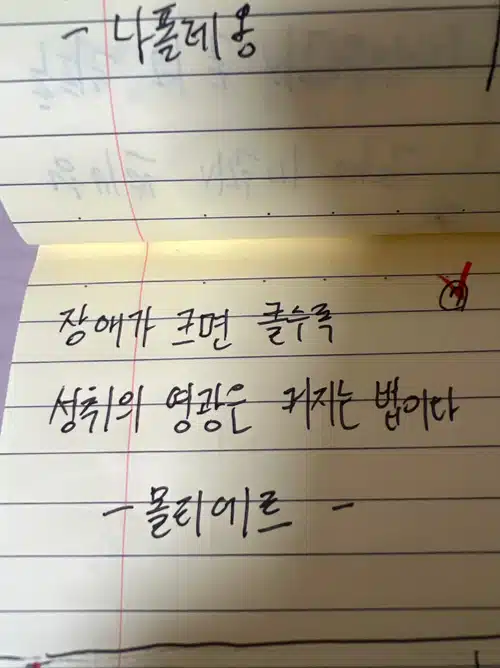 - 나폴레옹
장애가 크면 클수록
성취의 영광은 커지는 법이다
- 몰리에르 -